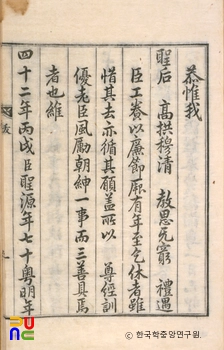 恭惟我
聖后 高拱穆清 教思无窮 禮遇
臣工養以廉節厥有年至乞休者雖
惜其去亦循其願盖所以 尊經訓
優老臣風勵朝紳一事而三善具焉
者也維
四十二年丙戌臣聖源年七十粤明年
© 한국학중앙연구원